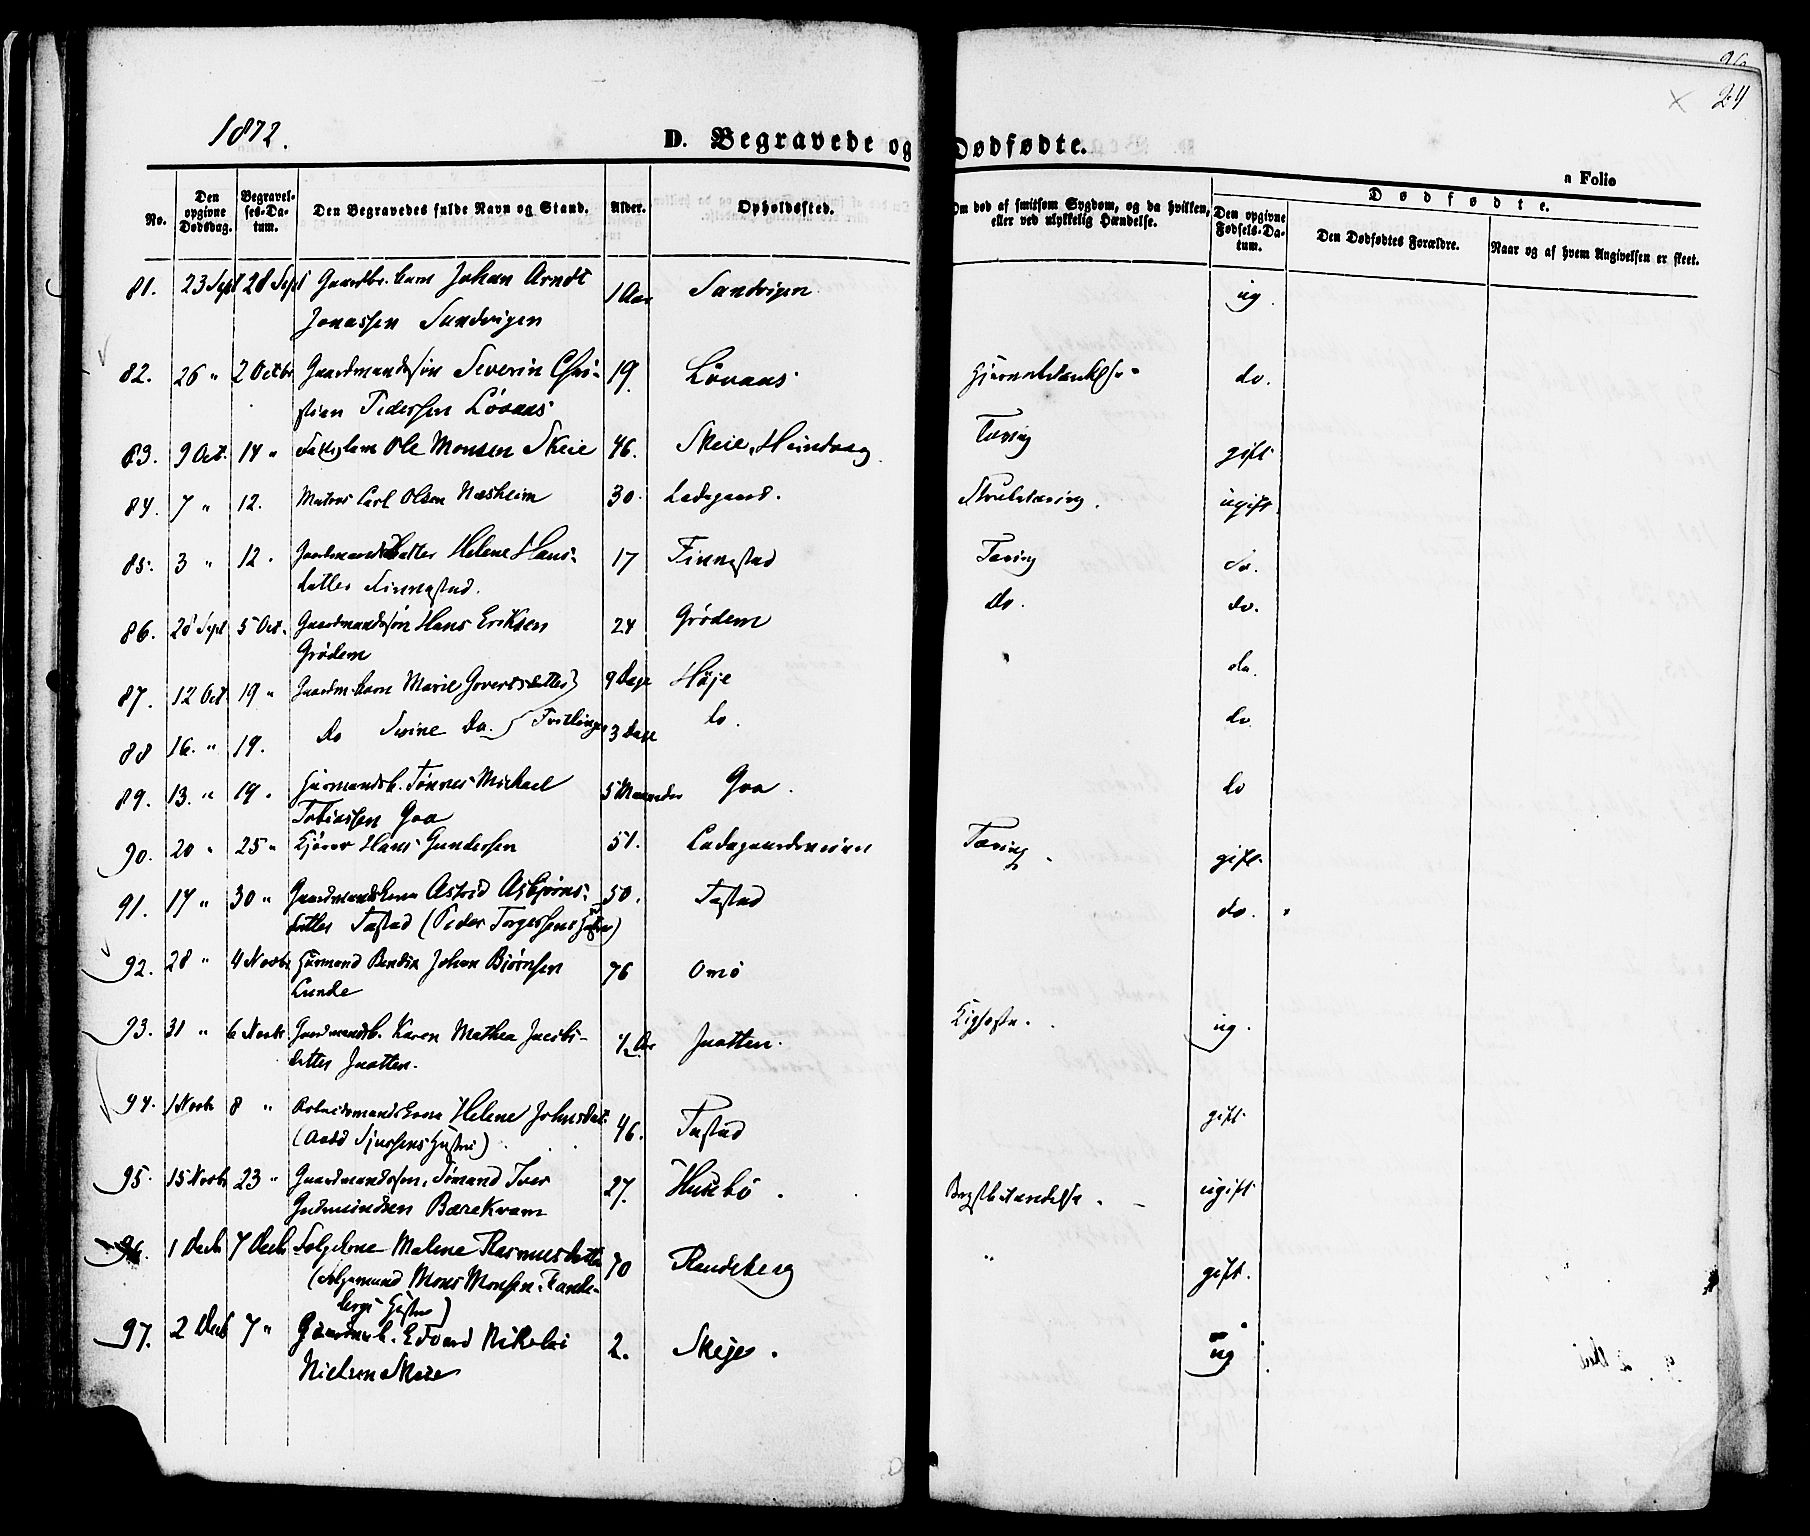 24
1872.
D. Begravede og Dødfødte.
n Folio
No.
Den opgivne Dødsdag.
Begravelses-Datum.
Den Begravedes fulde Navn og Stand.
Alder.
Opholdssted.
Om død af smitsom Sygdom, og da hvilken, eller ved ulykkelig Hændelse.
Dødfødte.
Den opgivne Fødsels-Datum.
Den Dødfødtes Forældre.
Naar og af hvem Angivelsen er skeet.
81. 23 Sept 28 Sept Gaardbr. barn Johan Arndt 1 Aar Sandvigen ug.
Jonassen Sandvigen
82. 26 " 2 Octbr Gaardmandssøn Severin Chri- 19. Løvaas do.
stian Pedersen Løvaas
83. 9 Oct. 14 " Ole Monsen Skeie 46. Skeie, Hundvaag Tæring gift
84. 7 " 12. Matros Carl Olsen Næsheim 30. Ladegaard. Strubetæring. ugift
85. 3 " 12. Gaardmandsdatter Helene Hans- 17 Finnestad Tæring do.
datter Finnestad.
86. 28 Sept 5 Oct. Gaardmandssøn Hans Eriksen 24 Grødem do. do.
Grødem
87. 12 Oct 19 " Gaardm. barn Marie Govertsdatter } 9 Dage Høje do.
88 16. " 19. do Serine do. } Tvillinger 3 Dage do. do.
89. 13. " 19. Huusmandsb. Tønnes Michael 5 Maaneder Goa. do
Tobiassen Goa
90. 20 " 25 " Kjører Hans Gundersen 51. Ladegaardsveien Tæring. gift
91. 17 " 30 " Gaardmandskone Astrid Asbjørns- 50. Tastad do.
datter Tastad (Peder Torgersens Hustru)
92. 28 " 4 Novbr Huusmand Johan Bjørnsen 76 Omø
Lunde
93. 31 " 6 Novbr. Gaardmandsb. Karen Mathea Jacobs- ½ Aar Jaatten. Kighoste. ug.
datter Jaatten.
94. 1 Novbr 8 " Arbeidsmandskone Helene Johnsdat. 46. Tastad gift
(Sjursens Hustru)
95. 15 Novbr 23 " Gaardmandssøn, Sømand Iver 27. Husebø. Brystbetændelse. ugift
Gudmundsen Barekvam
96. 1 Decb 7 Decb Malene Rasmusdatter 70 Randeberg " gift.
(Mons Monsen Rande-
bergs Hustru)
97. 2 Decb 7 " Gaardm. b. Edvard Nikolai 2. Skeje. ug
Nielsen Skeie